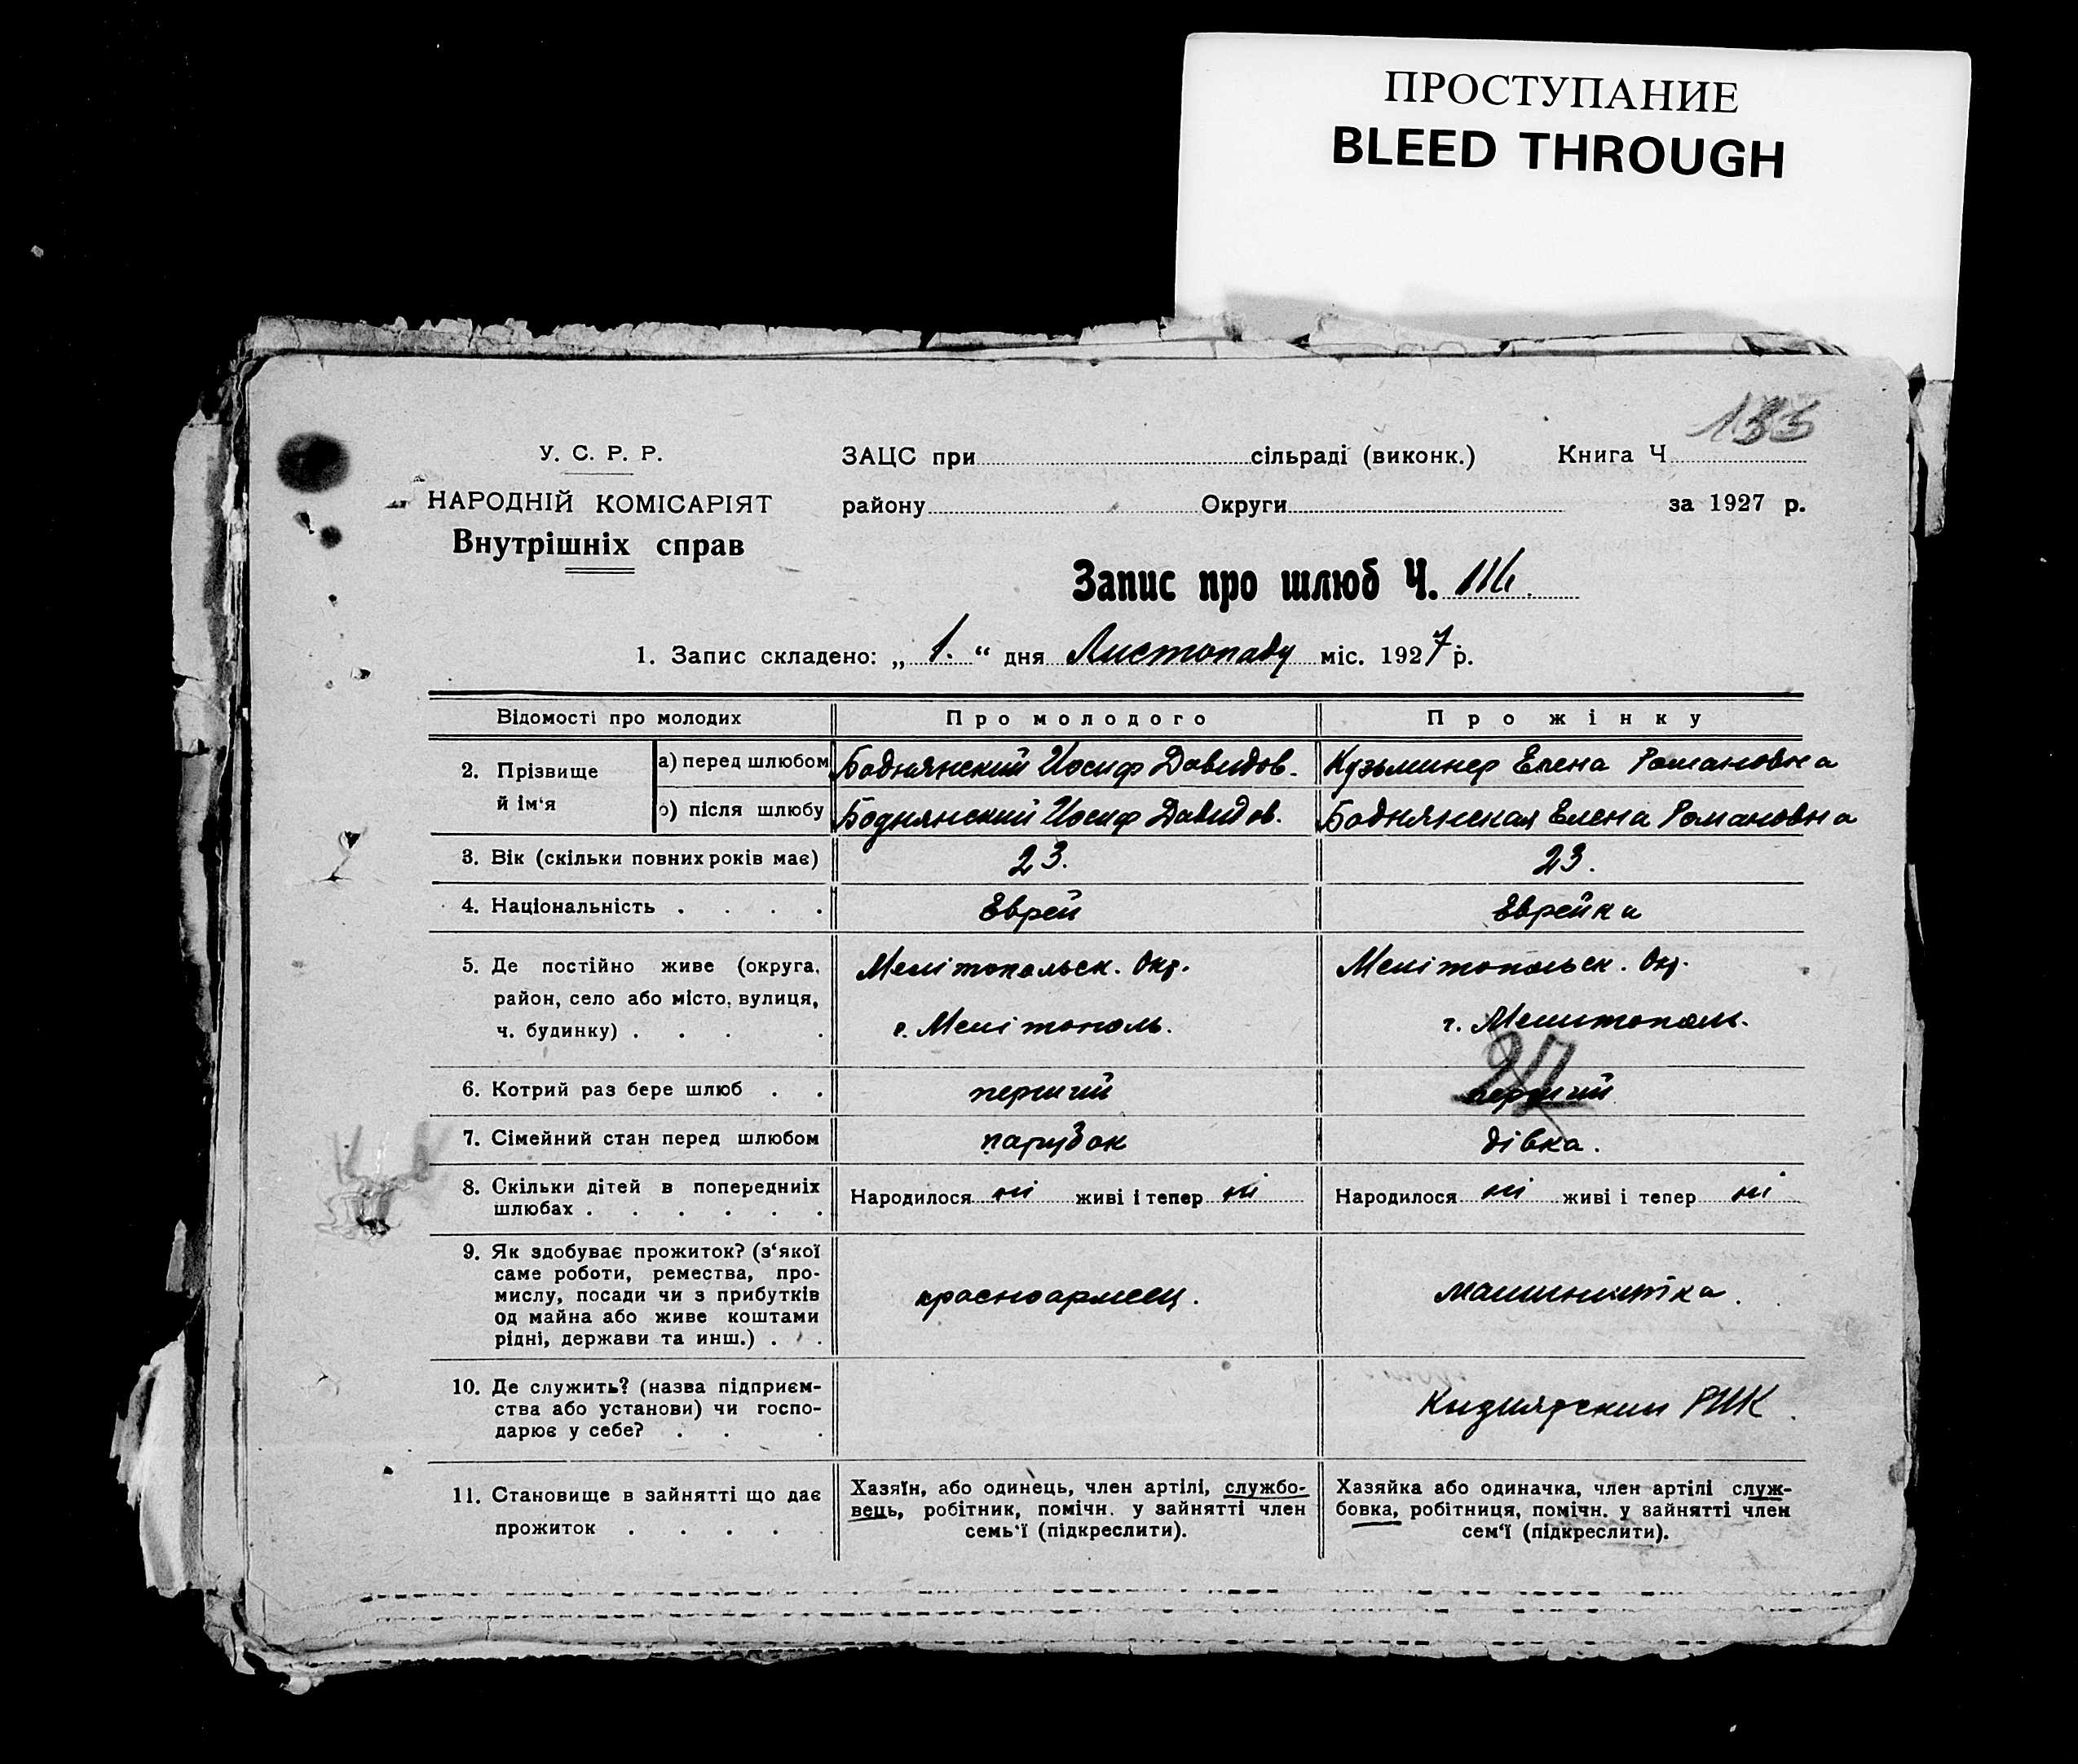 ПРОСТУПАНИЕ
BLEED THROUGH
133
У. С. Р. Р.
НАРОДНІЙ КОМІСАРІЯТ
Внутрішніх справ
ЗАЦС при сільраді (виконк.) Книга Ч
району Округи за 1927 р.
Запис про шлюб Ч.
1. Запис складено: „ 1. “ дня Листопаду міс. 1927 р.
Відомості про молодих Про молодого Про жінку
2. Прізвище й ім‘я
а) перед шлюбом Боднянский Иосиф Давидов. Кузьминер Елена Романовна
о) після шлюбу Боднянский Иосиф Давидов. Боднянская Елена Романовна
3. Вік (скільки повних років має) 23. 23.
4. Національність . . . . Еврей Еврейка
5. Де постійно живе (округа, район, село або місто, вулиця, ч. будинку) . . . .
Мелітопольск. Окр.
г. Мелітополь.
Мелітопольск. Окр.
г. Мелитополь.
27
6. Котрий раз бере шлюб . . перший перший
7. Сімейний стан перед шлюбом парубок дівка.
8. Скільки дітей в попередниіх шлюбах . . . . . .
Народилося ні живі і тепер ні
Народилося ні живі і тепер ні
9. Як здобуває прожиток? (з‘якої
саме роботи, ремества, про-
мислу, посади чи з прибутків
од майна або живе коштами
рідні, держави та инш.) . . .
красноармеец. машинистка.
10. Де служить? (назва підприєм-
ства або установи) чи госпо-
дарює у себе? . . .
РИК
11. Становище в зайнятті що дає
прожиток . . . . .
Хазяїн, або одинець, член артілі, службо-
вець, робітник, помічн. у зайнятті член
семь‘ї (підкреслити).
Хазяйка або одиначка, член артілі служ-
бовка, робітниця, помічн. у зайнятті член
сем‘ї (підкреслити).